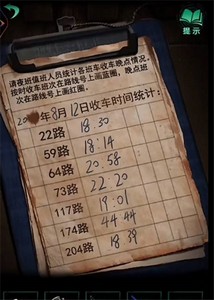 提示
请夜班值班人员统计各班车收车晚点情况。
按时收车班次在路线号上画蓝圈，晚点班
次在路线号上画红圈。
年8月12日收车时间统计：
22路 18 30
59路 18'14
64路 20 58
73路 22 20
117路 19:01
174路 44 44
204路 18